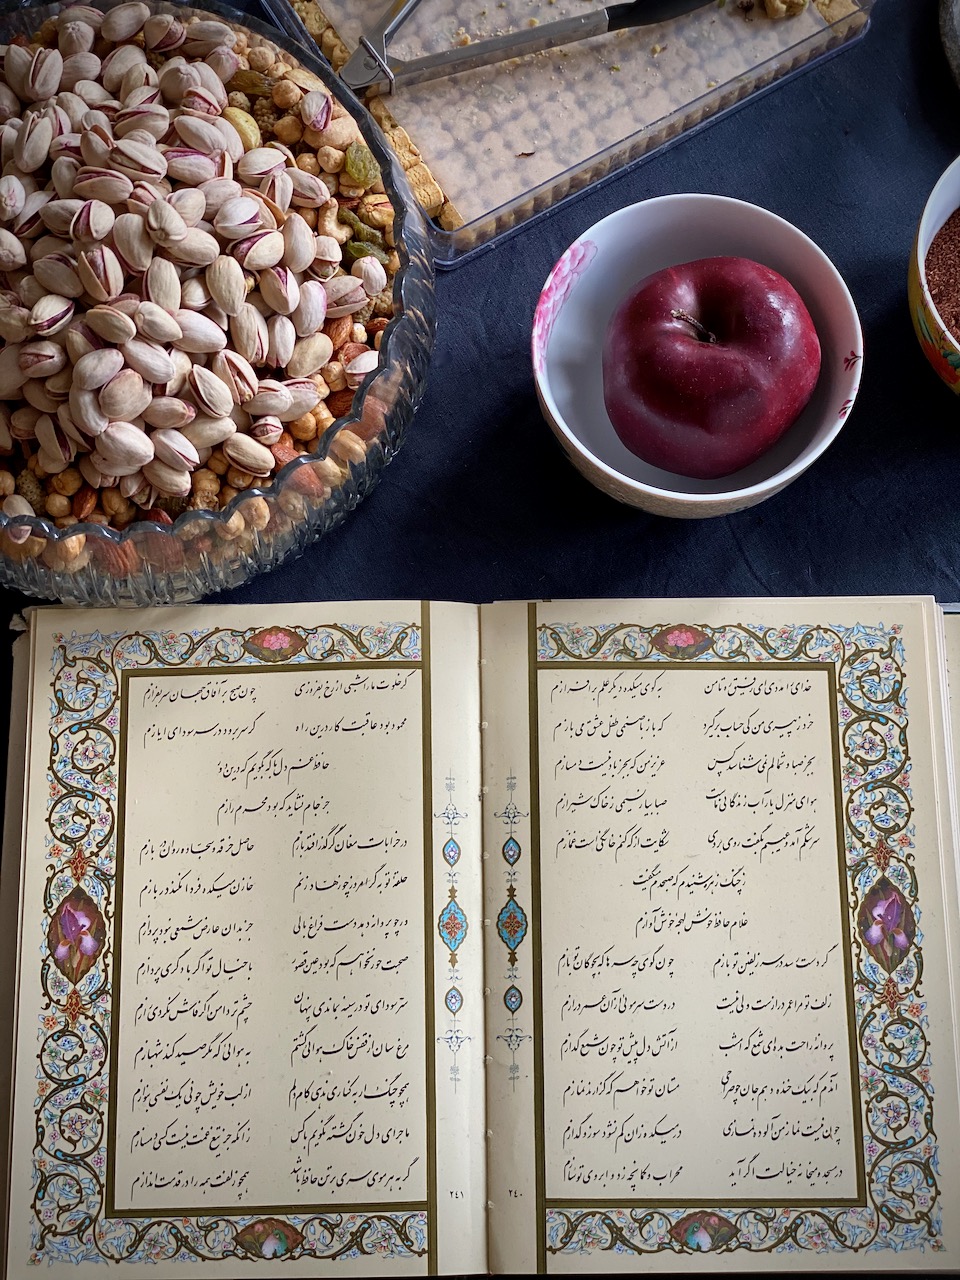 خدای را مددی ای رفیق ره تا من
به کوی میکده دیگر علم برافرازم
خرد ز پیری من کی حساب برگیرد
که باز با صنمی طفل عشق می بازم
بجز صبا و شمالم نمی شناسد کس
عزیز من که بجز باد نیست دمسازم
هوای منزل یار آب زندگانی ماست
صبا بیار نسیمی ز خاک شیرازم
سرشکم آمد و عیبم بگفت روی بروی
شکایت از که کنم خانگی است غمازم
ز چنگ زهره شنیدم که صبحدم میگفت
غلام حافظ خوش لهجه خوش آوازم
گر دست رسد در سر زلفین تو بازم
چون گوی چه سرها که بچوگان تو بازم
زلف تو مرا عمر درازست ولی نیست
در دست سر مویی از آن عمر درازم
پروانه راحت بده ای شمع که امشب
از آتش دل پیش تو چون شمع گدازم
آندم که بیک خنده دهم جان چو صراحی
مستان تو خواهم که گزارند نمازم
چون نیست نماز من آلوده نمازی
در میکده زان کم نشود سوز و گدازم
در مسجد و میخانه خیالت اگر آید
محراب و کمانچه ز دو ابروی تو سازم
۲۴۰
گر خلوت ما را شبی از رخ بفروزی
چون صبح بر آفاق جهان سر بفرازم
محمود بود عاقبت کار درین راه
گر سر برود در سر سودای ایازم
حافظ غم دل با که بگویم که درین دور
جز جام نشاید که بود محرم رازم
در خرابات مغان گر گذر افتد بازم
حاصل خرقه و سجاده روان در بازم
حلقه توبه گر امروز چو زهاد زنم
خازن میکده فردا نکند در بازم
ور چو پروانه دهد دست فراغ بالی
جز بدان عارض شمعی نبود پروازم
صحبت حور نخواهم که بود عین قصور
با خیال تو اگر با دگری پردازم
سر سودای تو در سینه بماندی پنهان
چشم تر دامن اگر فاش نکردی رازم
مرغ سان از قفس خاک هوایی گشتم
به هوایی که مگر صید کند شهبازم
همچو چنگ ار به کناری ندهی کام دلم
از لب خویش چو نی یک نفسی بنوازم
ماجرای دل خون گشته نگویم با کس
زانکه جز تیغ غمت نیست کسی دمسازم
گر به هر موی سری بر تن حافظ باشد
همچو زلفت همه را در قدمت اندازم
۲۴۱